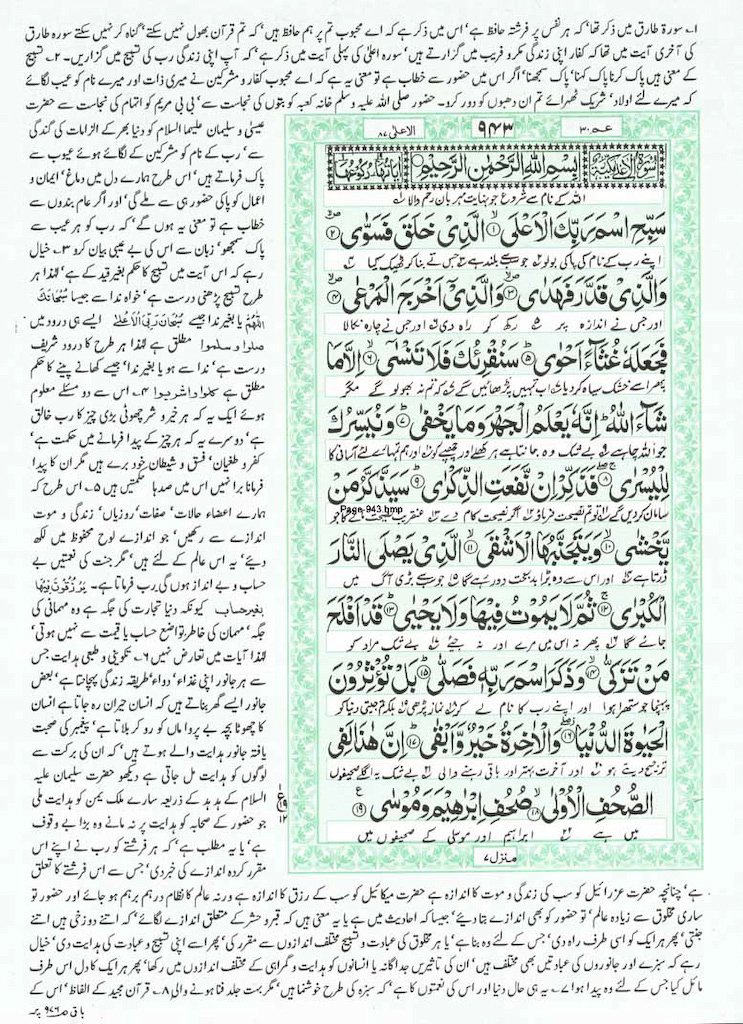 ۱؎ سورۃ طارق میں ذکر تھا' کہ ہر نفس پر فرشتہ حافظ ہے' اس میں ذکر ہے کہ اے محبوب تم پر ہم حافظ ہیں' کہ تم قرآن بھول نہیں سکتے' گناہ کر نہیں سکتے سورہ طارق
کی آخری آیت میں تھا کہ کفار اپنی زندگی مکر و فریب میں گزارتے ہیں' سورہ اعلیٰ کی پہلی آیت میں ذکر ہے' کہ آپ اپنی زندگی رب کی تسبیح میں گزاریں۔ ۲؎ تسبیح
کے معنی ہیں پاک کرنا پاک کہنا' پاک سمجھنا' اگر اس میں حضور سے خطاب ہے تو معنی یہ ہے کہ اے محبوب کفار و مشرکین نے میری ذات اور میرے نام کو عیب لگائے
کہ میرے لئے اولاد' شریک ٹھہرائے تم ان دھبوں کو دور کرو۔ حضور صلی اللہ علیہ و سلم خانہ کعبہ کو بتوں کی نجاست سے' بی بی مریم کو اتہام کی نجاست سے' حضرت
عمّ ۳۰
۹۴۳
الاعلیٰ ۸۷
بِسْمِ اللهِ الرَّحْمٰنِ الرَّحِيْمِ
اللہ کے نام سے شروع جو نہایت مہربان رحم والا
سَبِّحِ اسْمَ رَبِّكَ الْاَعْلَى ۱ الَّذِيْ خَلَقَ فَسَوّٰى ۲
اپنے رب کے نام کی پاکی بولو جو سب سے بلند ہے جس نے بنا کر ٹھیک کیا
وَالَّذِيْ قَدَّرَ فَهَدٰى ۳ وَالَّذِيْٓ اَخْرَجَ الْمَرْعٰى ۴
اور جس نے اندازہ پر رکھ کر راہ دی اور جس نے چارہ نکالا
فَجَعَلَهٗ غُثَآءً اَحْوٰى ۵ سَنُقْرِئُكَ فَلَا تَنْسٰٓى ۶ اِلَّا مَا
پھر اسے خشک سیاہ کر دیا اب ہم تمہیں پڑھائیں گے کہ تم نہ بھولو گے مگر
شَآءَ اللهُ اِنَّهٗ يَعْلَمُ الْجَهْرَ وَمَا يَخْفٰى ۷ وَنُيَسِّرُكَ
جو اللہ چاہے بے شک وہ جانتا ہے ہر کھلے اور چھپے کو اور ہم تمہارے لئے آسانی کا
لِلْيُسْرٰى ۸ فَذَكِّرْ اِنْ نَّفَعَتِ الذِّكْرٰى ۹ سَيَذَّكَّرُ مَنْ
Page-943.bmp
سامان کر دیں گے تو تم نصیحت فرماؤ اگر نصیحت کام دے عنقریب نصیحت مانے گا جو
يَّخْشٰى ۱۰ وَيَتَجَنَّبُهَا الْاَشْقَى ۱۱ الَّذِيْ يَصْلَى النَّارَ
ڈرتا ہے اور اس سے وہ بڑا بدبخت دور رہے گا جو سب سے بڑی آگ میں
الْكُبْرٰى ۱۲ ثُمَّ لَا يَمُوْتُ فِيْهَا وَلَا يَحْيٰى ۱۳ قَدْ اَفْلَحَ
جائے گا پھر نہ اس میں مرے اور نہ جئے بے شک مراد کو
مَنْ تَزَكّٰى ۱۴ وَذَكَرَ اسْمَ رَبِّهٖ فَصَلّٰى ۱۵ بَلْ تُؤْثِرُوْنَ
پہنچا جو ستھرا ہوا اور اپنے رب کا نام لے کر نماز پڑھی بلکہ تم جیتی دنیا کو
الْحَيٰوةَ الدُّنْيَا ۱۶ وَالْاٰخِرَةُ خَيْرٌ وَّاَبْقٰى ۱۷ اِنَّ هٰذَا لَفِي
ترجیح دیتے ہو اور آخرت بہتر اور باقی رہنے والی بے شک یہ اگلے صحیفوں
الصُّحُفِ الْاُوْلٰى ۱۸ صُحُفِ اِبْرٰهِيْمَ وَمُوْسٰى ۱۹
میں ہے ابراہیم اور موسیٰ کے صحیفوں میں
منزل ۷
عیسیٰ و سلیمان علیہما السلام کو دنیا بھر کے الزامات کی گندگی
سے' رب کے نام کو مشرکین کے لگائے ہوئے عیوب سے
پاک فرماتے ہیں' اس طرح ہمارے دل میں دماغ' ایمان و
اعمال کو پاکی حضور ہی سے ملے گی' اور اگر عام بندوں سے
خطاب ہے تو معنی یہ ہوں گے' کہ رب کو ہر عیب سے
پاک سمجھو' زبان سے اس کی بے عیبی بیان کرو ۳؎ خیال
رہے کہ اس آیت میں تسبیح کا حکم بغیر قید کے ہے' لہٰذا ہر
طرح تسبیح پڑھنی درست ہے' خواہ ندا سے جیسا سُبْحَانَكَ
اللّٰهُمَّ یا بغیر ندا جیسے سُبْحَانَ رَبِّيَ الْاَعْلٰى ایسے ہی درود میں
صلوا و سلموا مطلق ہے لہٰذا ہر طرح کا درود شریف
درست ہے' ندا سے ہو یا بغیر ندا' جیسے کھانے پینے کا حکم
مطلق ہے کلوا واشربوا ۴؎ اس سے دو مسئلے معلوم
ہوئے ایک یہ کہ ہر خیر و شر چھوٹی بڑی چیز کا رب خالق
ہے' دوسرے یہ کہ ہر چیز کے پیدا فرمانے میں حکمت ہے'
کفر و طغیان' فسق و شیطان خود برے ہیں مگر ان کا پیدا
فرمانا برا نہیں اس میں صدہا حکمتیں ہیں ۵؎ اس طرح کہ
ہمارے اعضاء حالات' صفات' روزیاں' زندگی و موت
اندازے سے رکھیں' جو اندازے لوح محفوظ میں لکھ
دیئے' یہ اس عالم کے لئے ہیں' مگر جنت کی نعمتیں بے
حساب و بے انداز ہوں گی رب فرماتا ہے۔ يُرْزَقُوْنَ فِيْهَا
بغیر حساب کیونکہ دنیا تجارت کی جگہ ہے وہ مہمانی کی
جگہ' مہمان کی خاطر تواضع حساب یا قیمت سے نہیں ہوتی'
لہٰذا آیات میں تعارض نہیں ۶؎ تکوینی و طبعی ہدایت جس
سے ہر جانور اپنی غذاء' دواء' طریقہ زندگی پہچانتا ہے' بعض
جانور ایسے گھر بناتے ہیں کہ انسان حیران رہ جاتا ہے انسان
کا چھوٹا بچہ بے پروا ماں کو رو کر بلاتا ہے' پیغمبر کی صحبت
یافتہ جانور ہدایت والے ہوتے ہیں' کہ ان کی برکت سے
لوگوں کو ہدایت مل جاتی ہے دیکھو حضرت سلیمان علیہ
السلام کے ہدہد کے ذریعہ سارے ملک یمن کو ہدایت ملی
جو حضور کے صحابہ کو ہدایت پر نہ مانے وہ بڑا بے وقوف
ہے' یا یہ مطلب ہے' کہ ہر فرشتے کو رب نے اپنے اس
مقرر کردہ اندازے کی خبر دی' جس سے اس فرشتے کا تعلق
ہے' چنانچہ حضرت عزرائیل کو سب کی زندگی و موت کا اندازہ ہے حضرت میکائیل کو سب کے رزق کا اندازہ ہے ورنہ عالم کا نظام درہم برہم ہو جائے اور حضور تو
ساری مخلوق سے زیادہ عالم' تو حضور کو بھی اندازے بتا دیئے' جیسا کہ احادیث میں ہے یا یہ معنی ہیں کہ قبر و حشر کے متعلق اندازے لگائے' کہ اتنے دوزخی ہیں اتنے
جنتی' پھر ہر ایک کو اسی طرف راہ دی' جس کے لئے وہ بنا ہے' یا ہر مخلوق کی عبادت و تسبیح مختلف اندازوں سے مقرر کی' پھر اسے اپنی تسبیح و عبادت کی ہدایت دی' خیال
رہے کہ سبزے اور جانوروں کی عبادتیں بھی مختلف ہیں' ان کی تاثیریں جداگانہ یا انسانوں کو ہدایت و گمراہی کے مختلف اندازوں میں رکھا' پھر ہر ایک کا دل اس طرف
مائل کیا جس کے لئے وہ پیدا ہوا ۷؎ یہ ہی حال دنیا اور اس کی نعمتوں کا ہے' کہ سبزہ کی طرح خوشنما ہیں' مگر بہت جلد فنا ہونے والی ۸؎ قرآن مجید کے الفاظ' اس کے
باقی ص ۹۷۶ پر۔